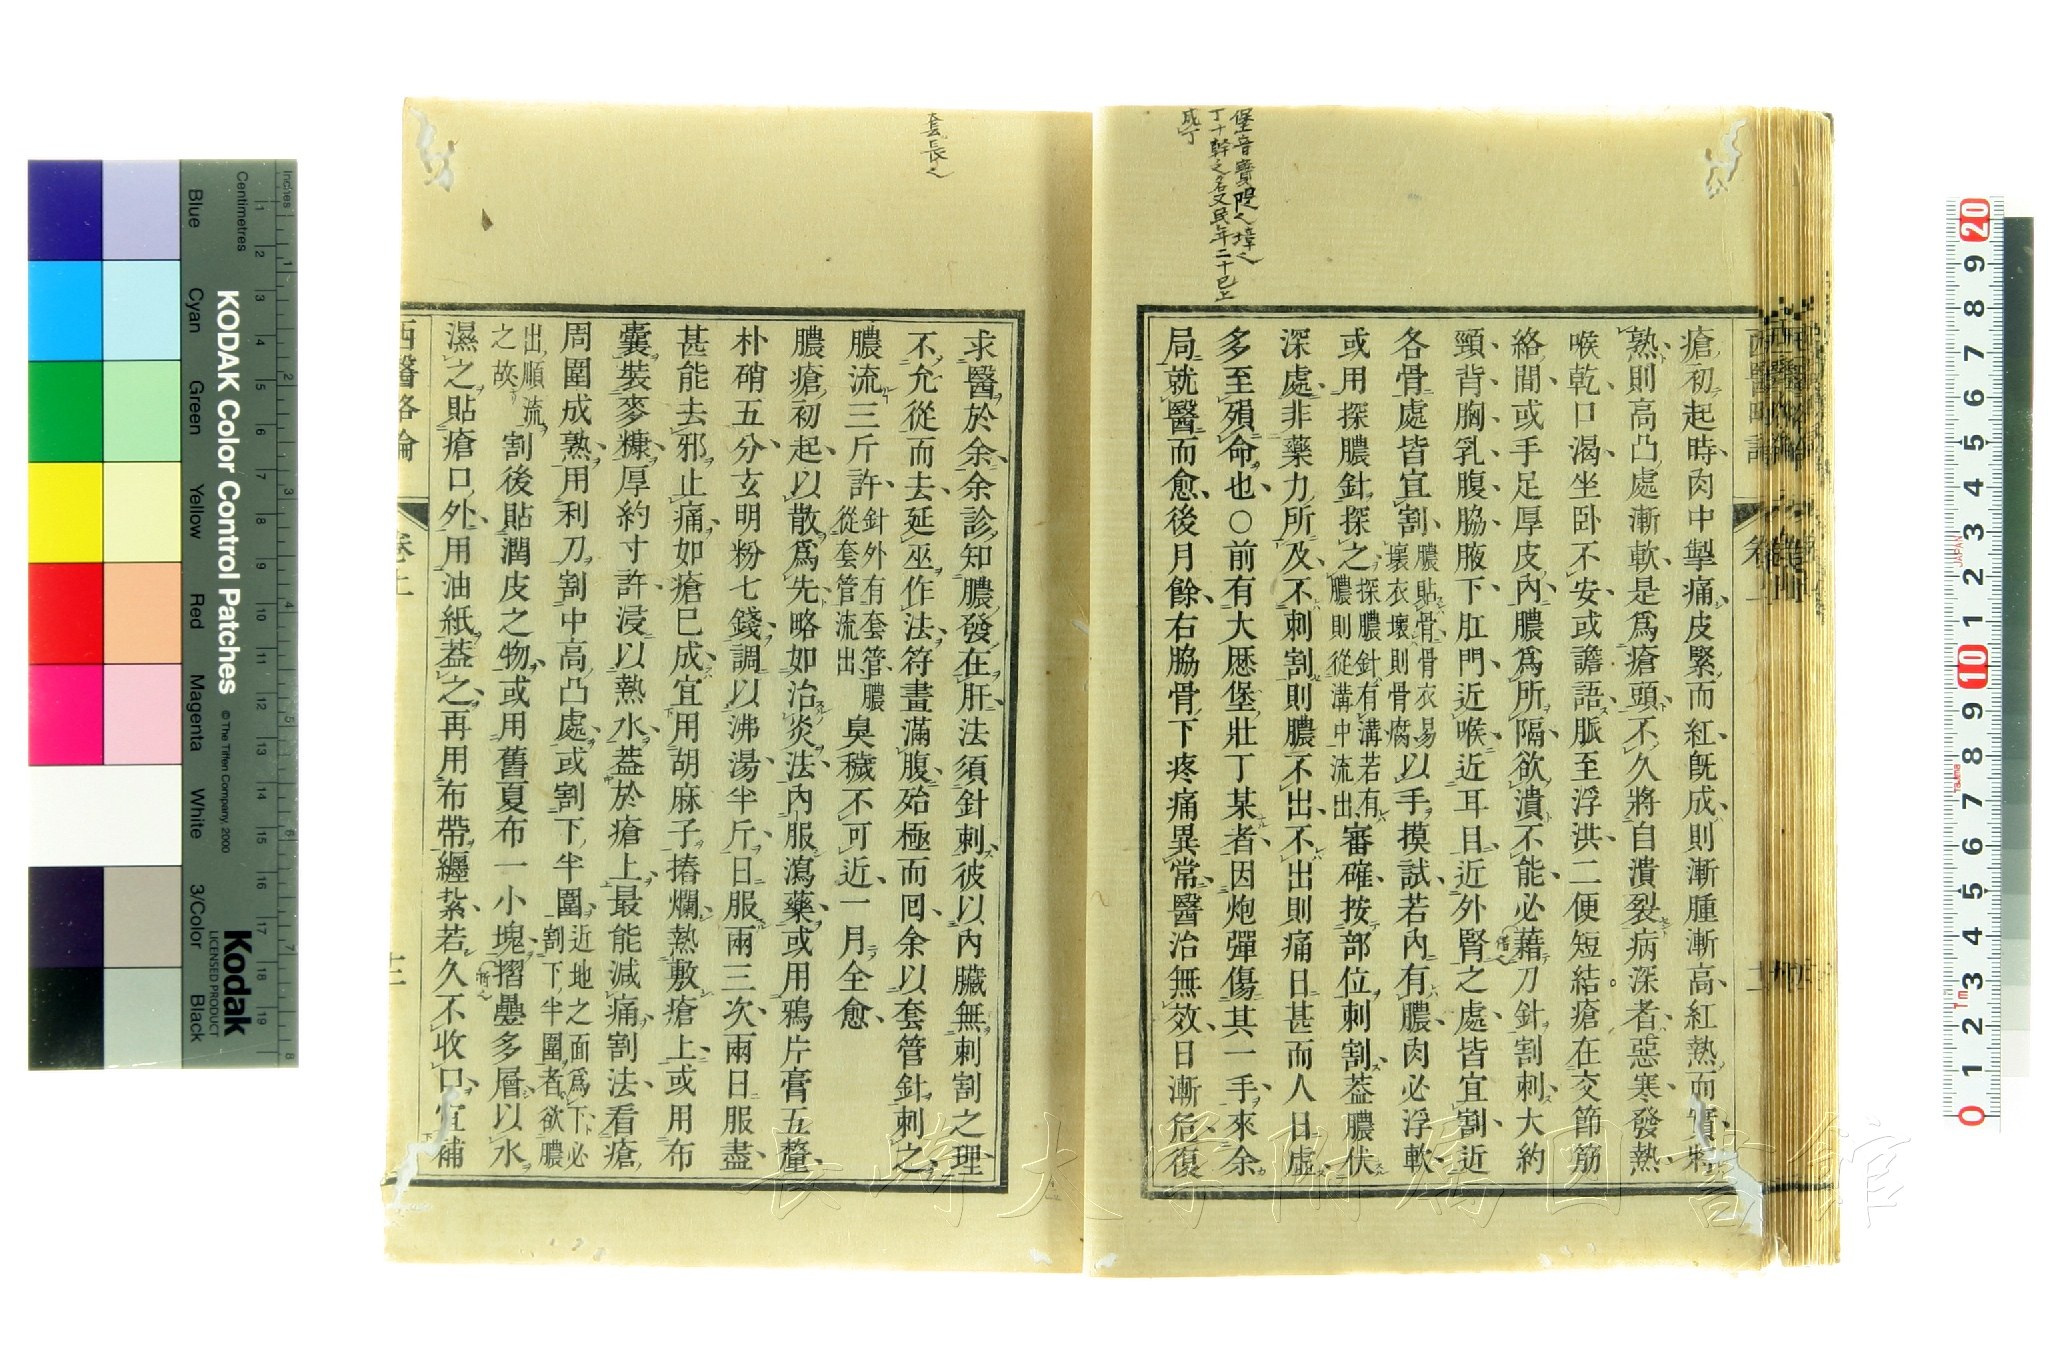 堡音寶隄也壇也
丁十幹之名又民年二十已上
成丁
瘡初起時肉中掣痛皮緊而紅既成則漸腫漸高紅熱而實將
熟則高凸處漸軟是爲瘡頭不久將自潰裂病深者惡寒發熱
喉乾口渴坐卧不安或譫語脈至浮洪二便短結瘡在交節筋
絡間或手足厚皮內膿爲所隔欲潰不能必藉刀針割刺大約
頸背胸乳腹脇腋下肛門近喉近耳目近外腎之處皆宜割近
各骨處皆宜割膿貼骨骨衣易壞衣壞則骨腐以手摸試若內有膿肉必浮軟
或用探膿針探之探膿針有溝若有膿則從溝中流出審確按部位刺割葢膿伏
深處非藥力所及不刺割則膿不出不出則痛日甚而人日虛
多至殞命也○前有大厯堡壯丁某者因炮彈傷其一手來余
局就醫而愈後月餘右脇骨下疼痛異常醫治無效日漸危復
套長也
求醫於余余診知膿發在肝法須針刺彼以內臟無刺割之理
不允從而去延巫作法符畫滿腹殆極而回余以套管針刺之
膿流三斤許針外有套管膿從套管流出臭穢不可近一月全愈
膿瘡初起以散爲先略如治炎法內服瀉藥或用鴉片膏五釐
朴硝五分玄明粉七錢調以沸湯半斤日服兩三次兩日服盡
甚能去邪止痛如瘡已成宜用胡麻子摏爛熱敷瘡上或用布
囊裝麥糠厚約寸許浸以熱水葢於瘡上最能減痛割法看瘡
周圍成熟用利刀割中高凸處或割下半圍近地之面爲下必割下半圍者欲膿
出順流之故割後貼潤皮之物或用舊夏布一小塊摺疊多層以水
濕之貼瘡口外用油紙葢之再用布帶纏紮若久不收口宜補
西醫略論
卷上
十二
KODAK Color Control Patches
© The Tiffen Company, 2000
Kodak
LICENSED PRODUCT
Inches
Centimetres
Blue
Cyan
Green
Yellow
Red
Magenta
White
3/Color
Black
JAPAN
長崎大学附属図書館